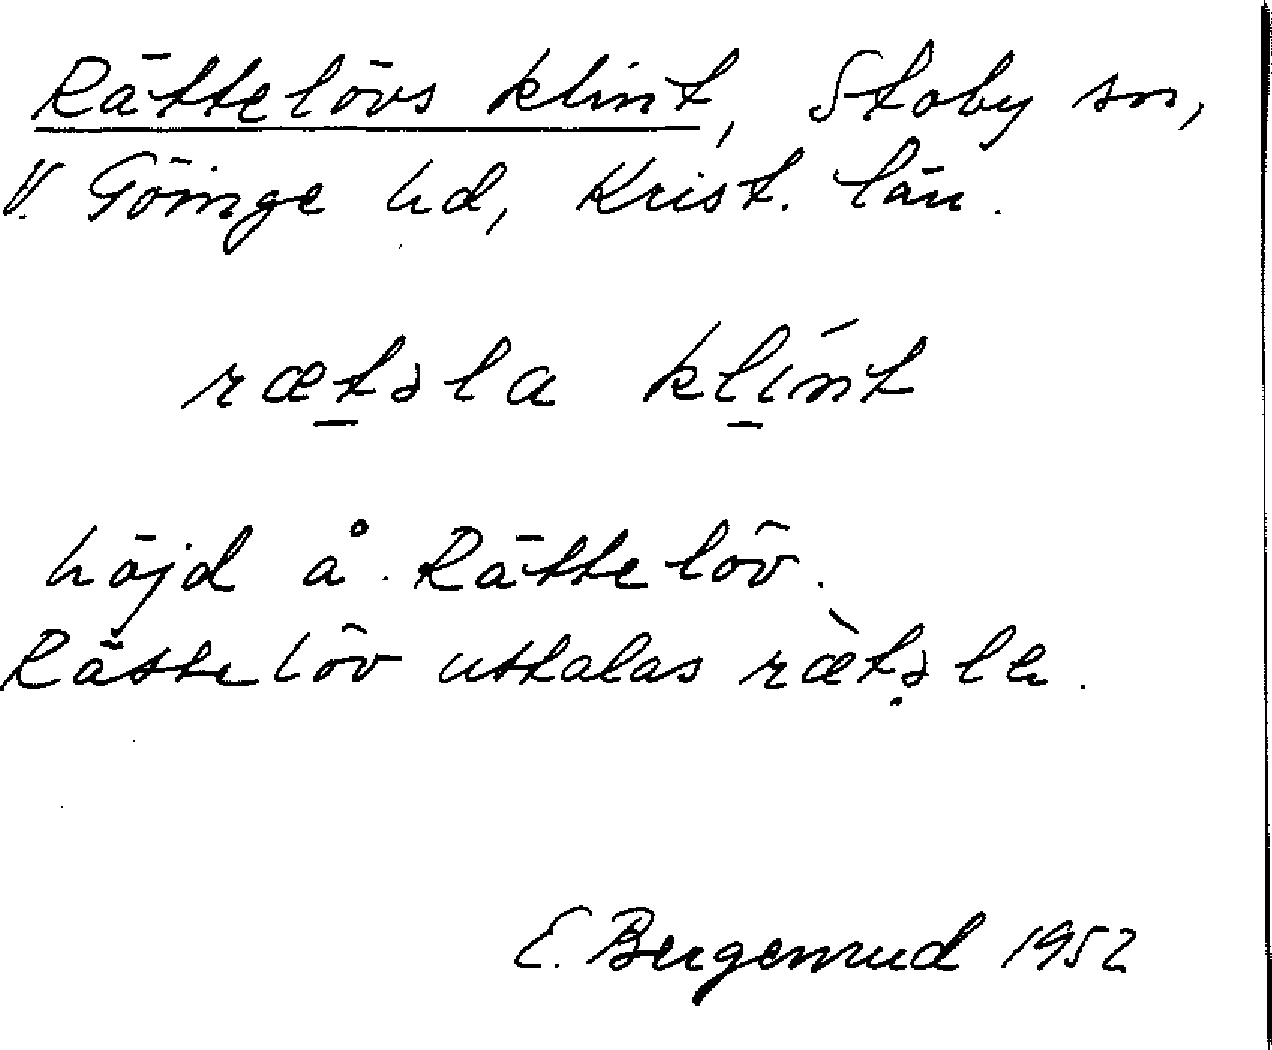 Rättelövs klint, Stoby sn,
V. Göinge hd, Krist. län.
ræt̠əla kl̠ínt
höjd å Rättelöv.
Rättelöv uttalas ræ̀t̩əla.
E. Bergenrud 1952